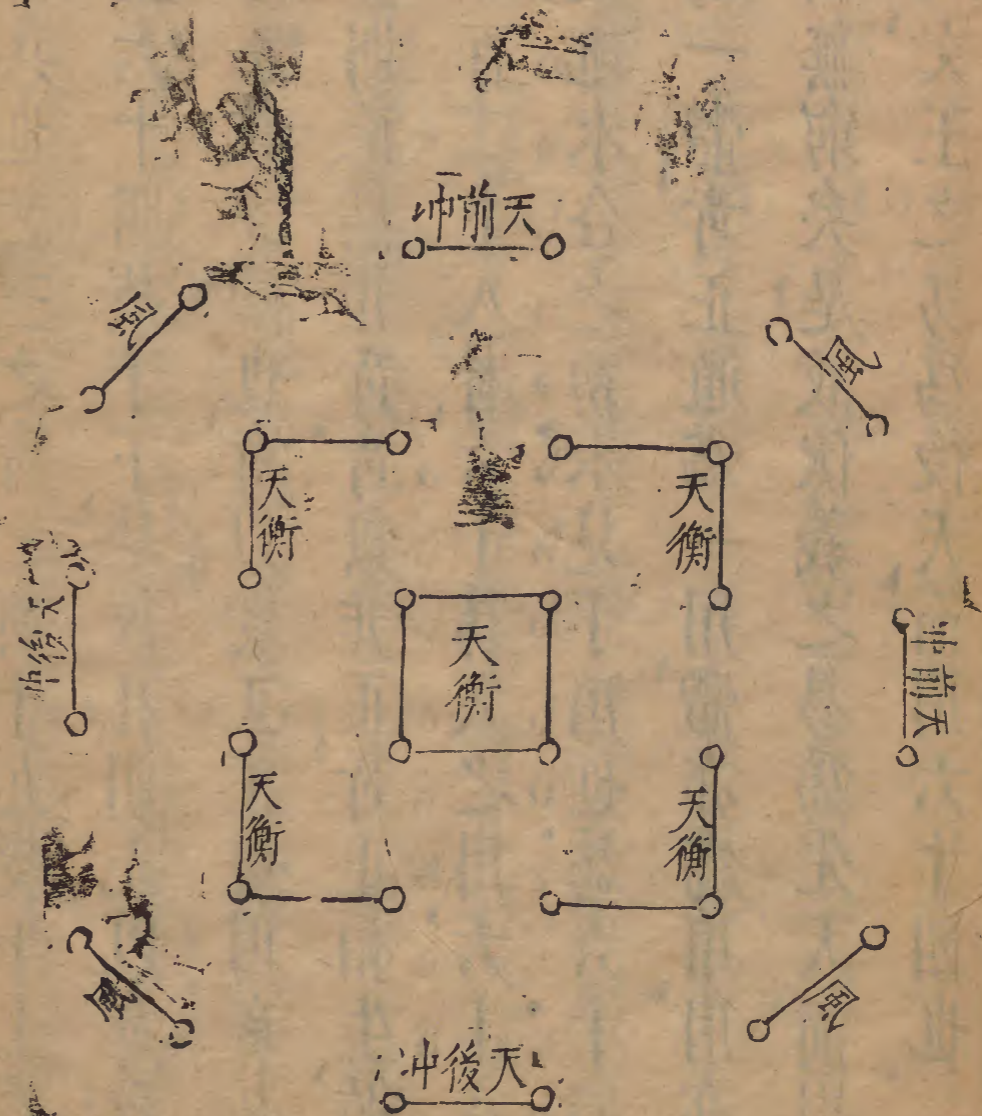 天前冲
風
風
天衡
天衡
天後冲
天衡
天前冲
天衡
天衡
風
風
天後冲